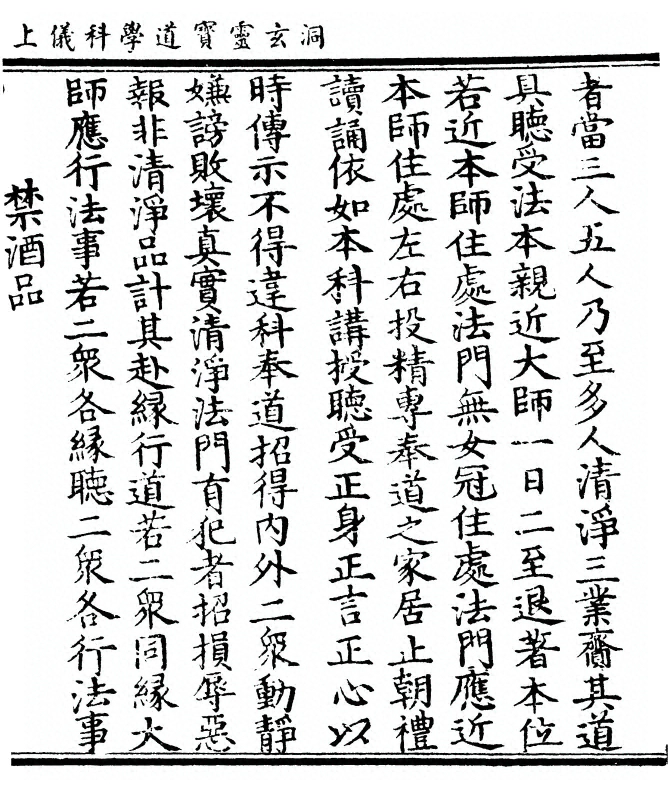 洞玄靈寳道學科儀上
者當三人五人乃至多人清淨三業齋其道
具聽受法本親近大師一日二至退著本位
若近本師住處法門無女冠住處法門應近
本師住處左右投精專奉道之家居止朝禮
讀誦依如本科講授聽受正身正言正心以
時傳示不得違科奉道招得内外二衆動靜
嫌謗敗壞真實清淨法門有犯者招損辱惡
報非清淨品計其赴縁行道若二衆同縁大
師應行法事若二衆各縁聽二衆各行法事
禁酒品